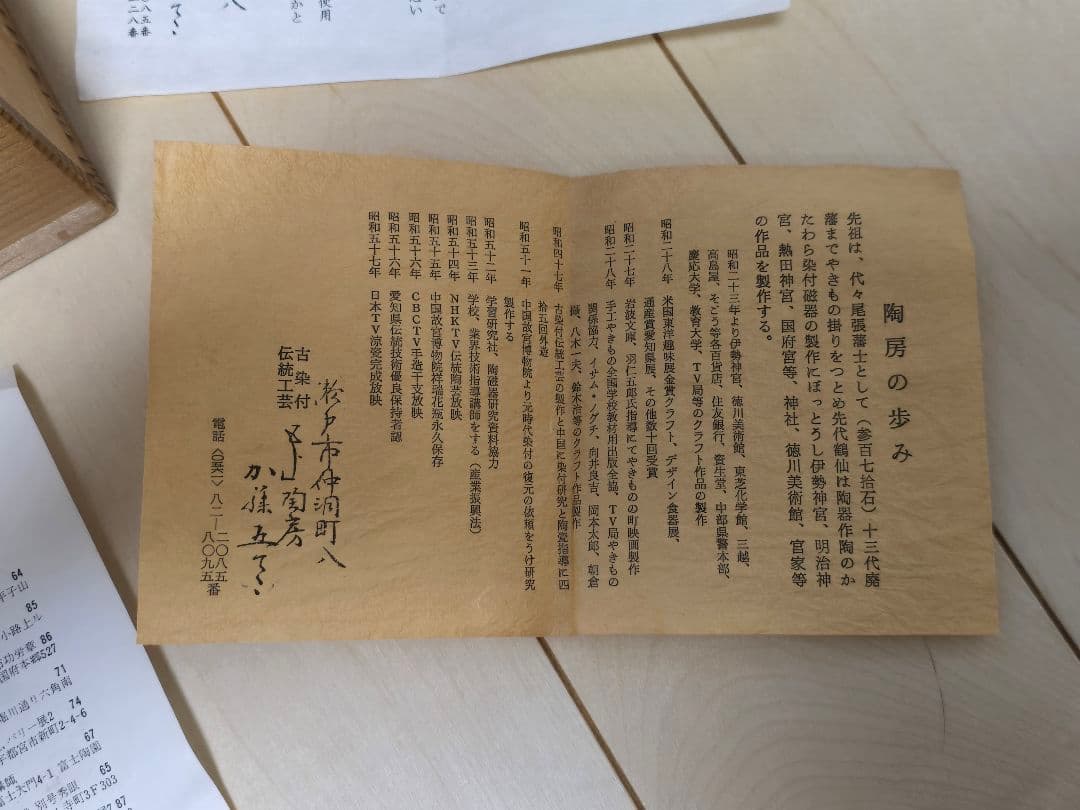 陶房の歩み
先祖は、代々尾張藩士として(参百七拾石)十三代廃
藩までやきもの掛りをつとめ先代鶴仙は陶器作陶のか
たわら染付磁器の製作にぼっとうし伊勢神宮、明治神
宮、熱田神宮、国府宮等、神社、徳川美術館、官家等
の作品を製作する。
昭和二十三年より伊勢神宮、徳川美術館、東芝化学館、三越、
高島屋、そごう等各百貨店、住友銀行、資生堂、中部県警本部、
慶応大学、教育大学、TV局等のクラフト作品の製作
昭和二十八年 米国東洋趣味展金賞クラフト、デザイン食器展、
通産賞愛知県展、その他数十回受賞
昭和二十七年 岩波文庫、羽仁五郎氏指導にてやきもの町映画製作
昭和二十八年 手工やきもの全国学校教材用出版全協、TV局やきもの
関係協力、イサム・ノグチ、向井良吉、岡本太郎、朝倉
摂、八木一夫、鈴木治等のクラフト作品製作
昭和四十七年 古染付伝統工芸の製作と中国に染付研究と陶瓷指導に四
拾五回外遊
昭和五十一年 中国故宮博物院より元時代染付の復元の依頼をうけ研究
製作する
昭和五十二年 学習研究社、陶磁器研究資料協力
昭和五十三年 学校、業界技術指導講師をする(産業振興法)
昭和五十四年 NHKTV伝統陶芸放映
昭和五十五年 中国故宮博物院祥瑞花瓶永久保存
昭和五十六年 CBCTV手造干支放映
昭和五十六年 愛知県伝統技術優良保持者認
昭和五十七年 日本TV涼瓷完成放映
瀬戸市仲洞町八
古染付
伝統工芸
陶房
加藤五
電話(〇五六一)八二―二〇八五
八〇九五番
使用
かと
八五番
二八番
64
平子山
85
小路上ル
86
功労章
国府本郷527
71
堀川通り六角南
74
バリー展2
宇都宮市新町2-4-6
67
富士陶園
富士天門4-1
65
別号秀眼
寺町3F303
87